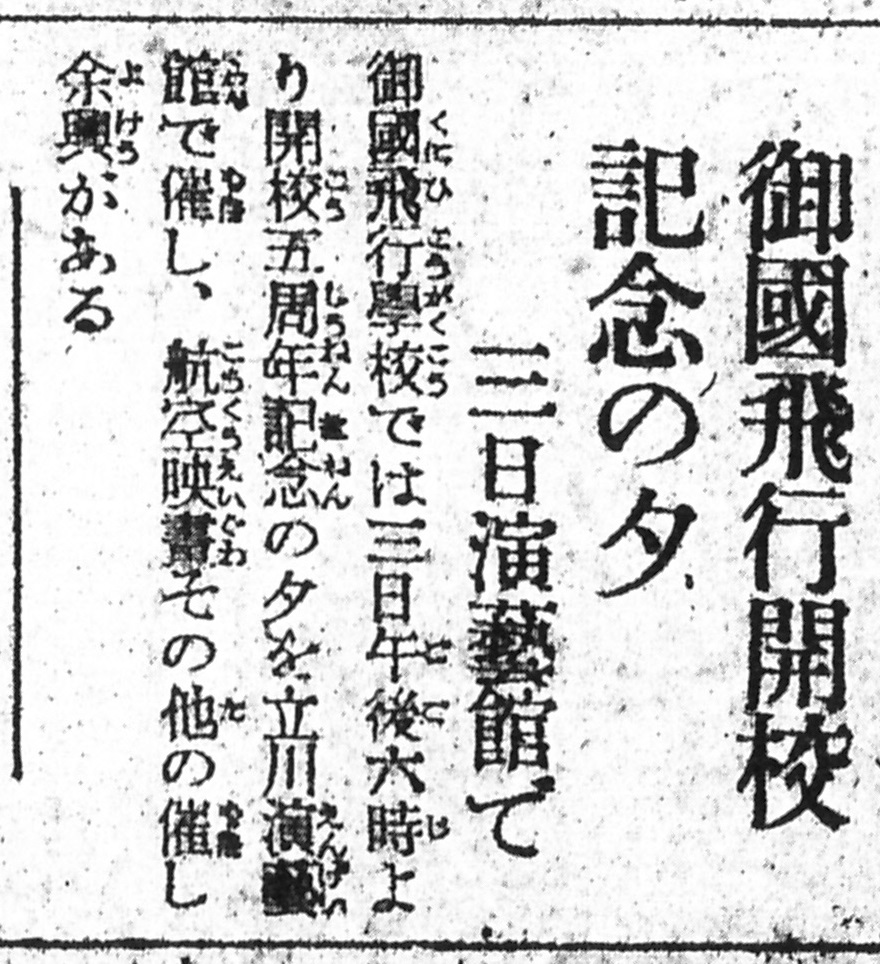 御國飛行開校
記念の夕
三日演藝館で
御國飛行學校では三日午後六時よ
り開校五周年記念の夕を立川演藝
館で催し、航空映畫その他の催し
余興がある